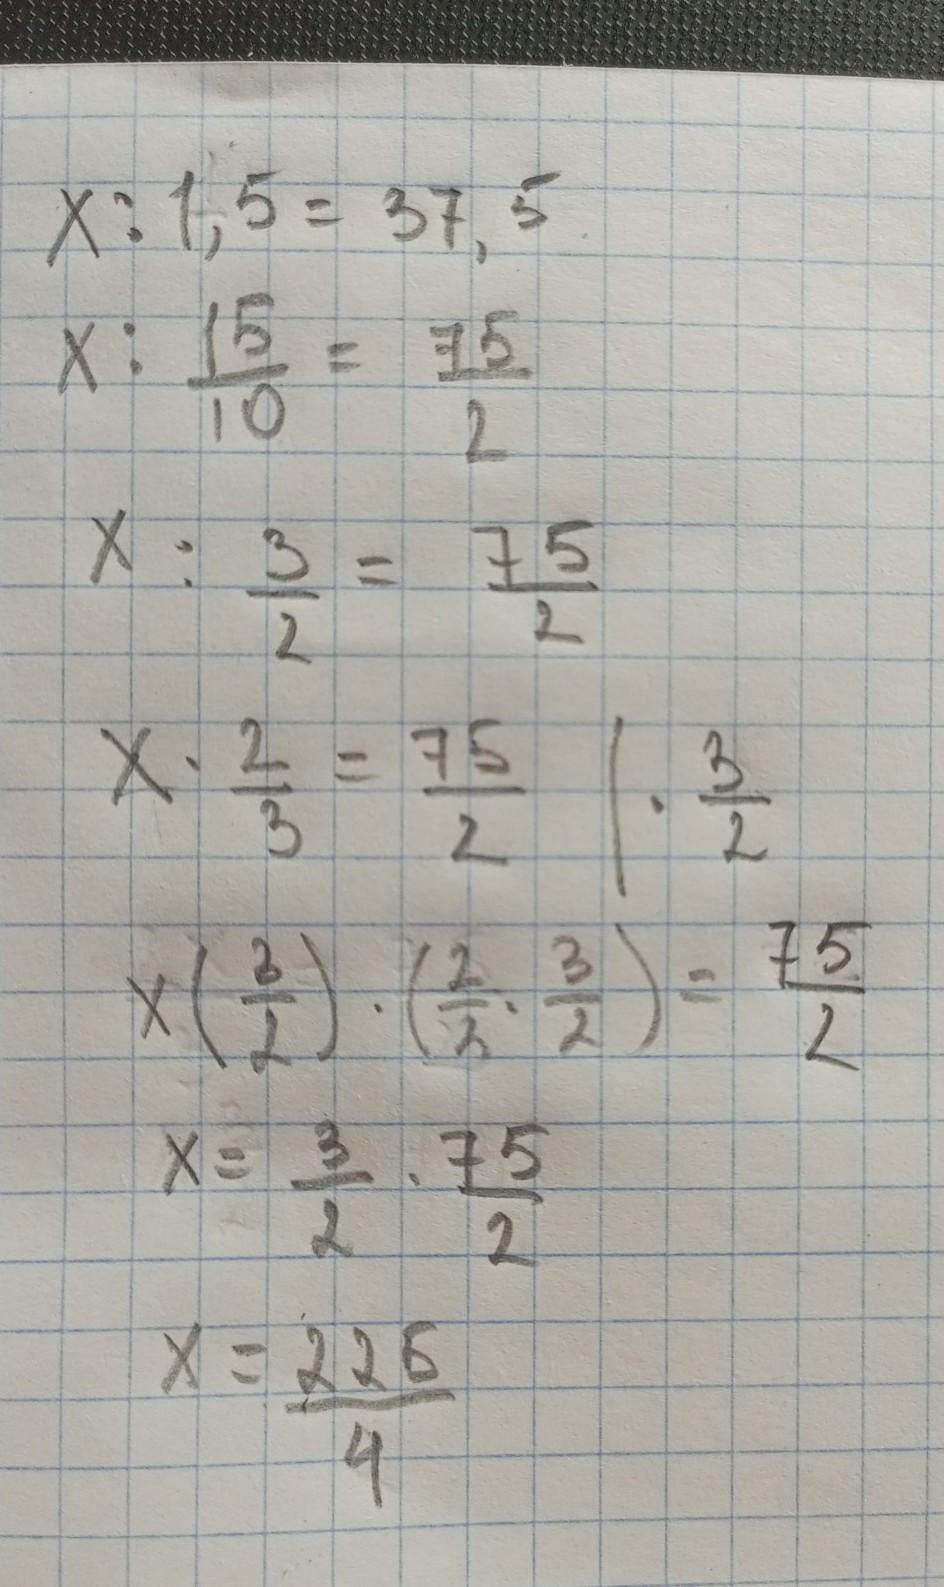 x : 1,5 = 37,5
x : 15/10 = 75/2
x : 3/2 = 75/2
x · 2/3 = 75/2 | · 3/2
x (3/2) · (2/2 · 3/2) = 75/2
x = 3/2 · 75/2
x = 226/4